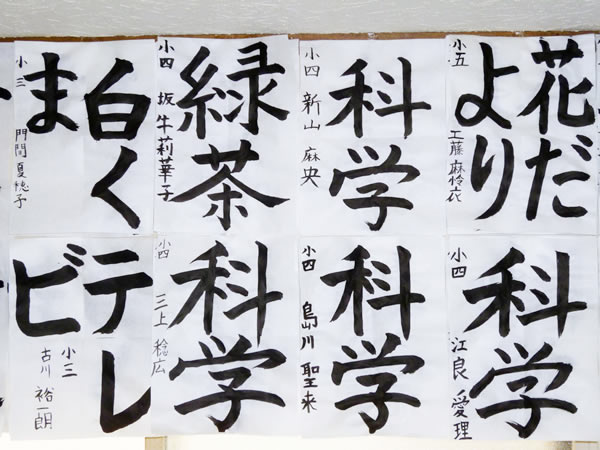 花だ
より
小五 工藤麻怜衣
科学
小四 新山 麻央
緑茶
小四 坂牛莉華子
白く
ま
小三 門間夏穂子
科学
小四 江良 愛理
科学
小四 島川 聖来
科学
小四 三上 稔広
テレ
ビ
小三 古川 裕一朗